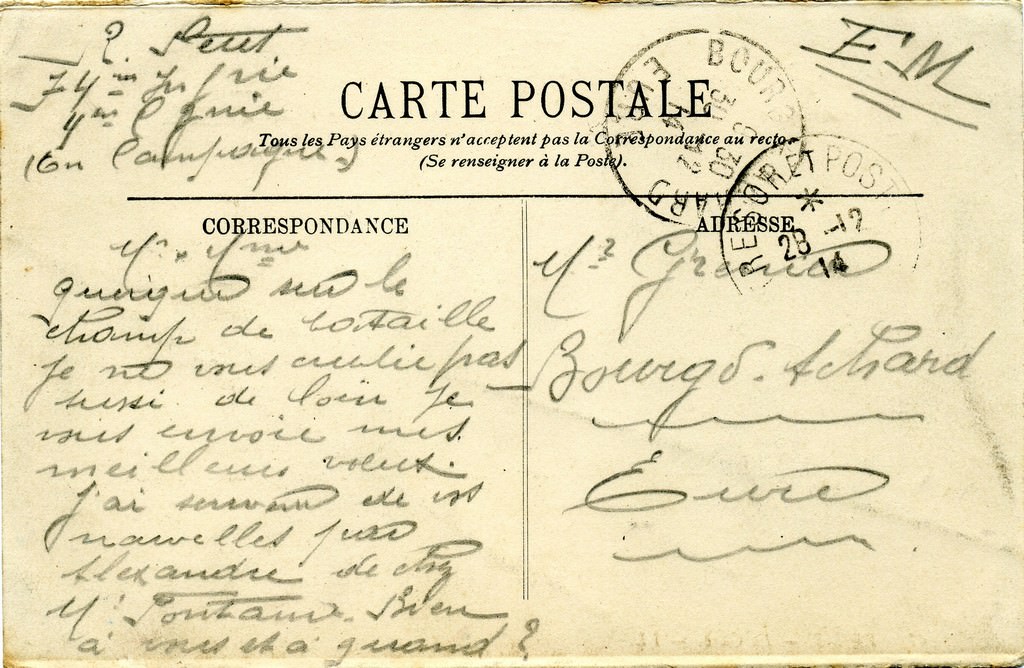 ? Petit
74me Infrie
4me Cgnie
(En Campagne)
E.M
CARTE POSTALE
Tous les Pays étrangers n'acceptent pas la Correspondance au recto
(Se renseigner à la Poste).
BOURG ACHARD
EURE
30 12 14
TRESOR ET POST
*
28 -12
14
CORRESPONDANCE
Mr. Mme
quoique sur le
champ de bataille
je ne vous oublie pas
aussi de loin je
vous envoie mes
meilleurs voeux.
J'ai souvent de vos
nouvelles par
Alexandre de chez
Mr Bien
à vous et à quand ?
ADRESSE
Mr
Bourgd. Achard
Eure